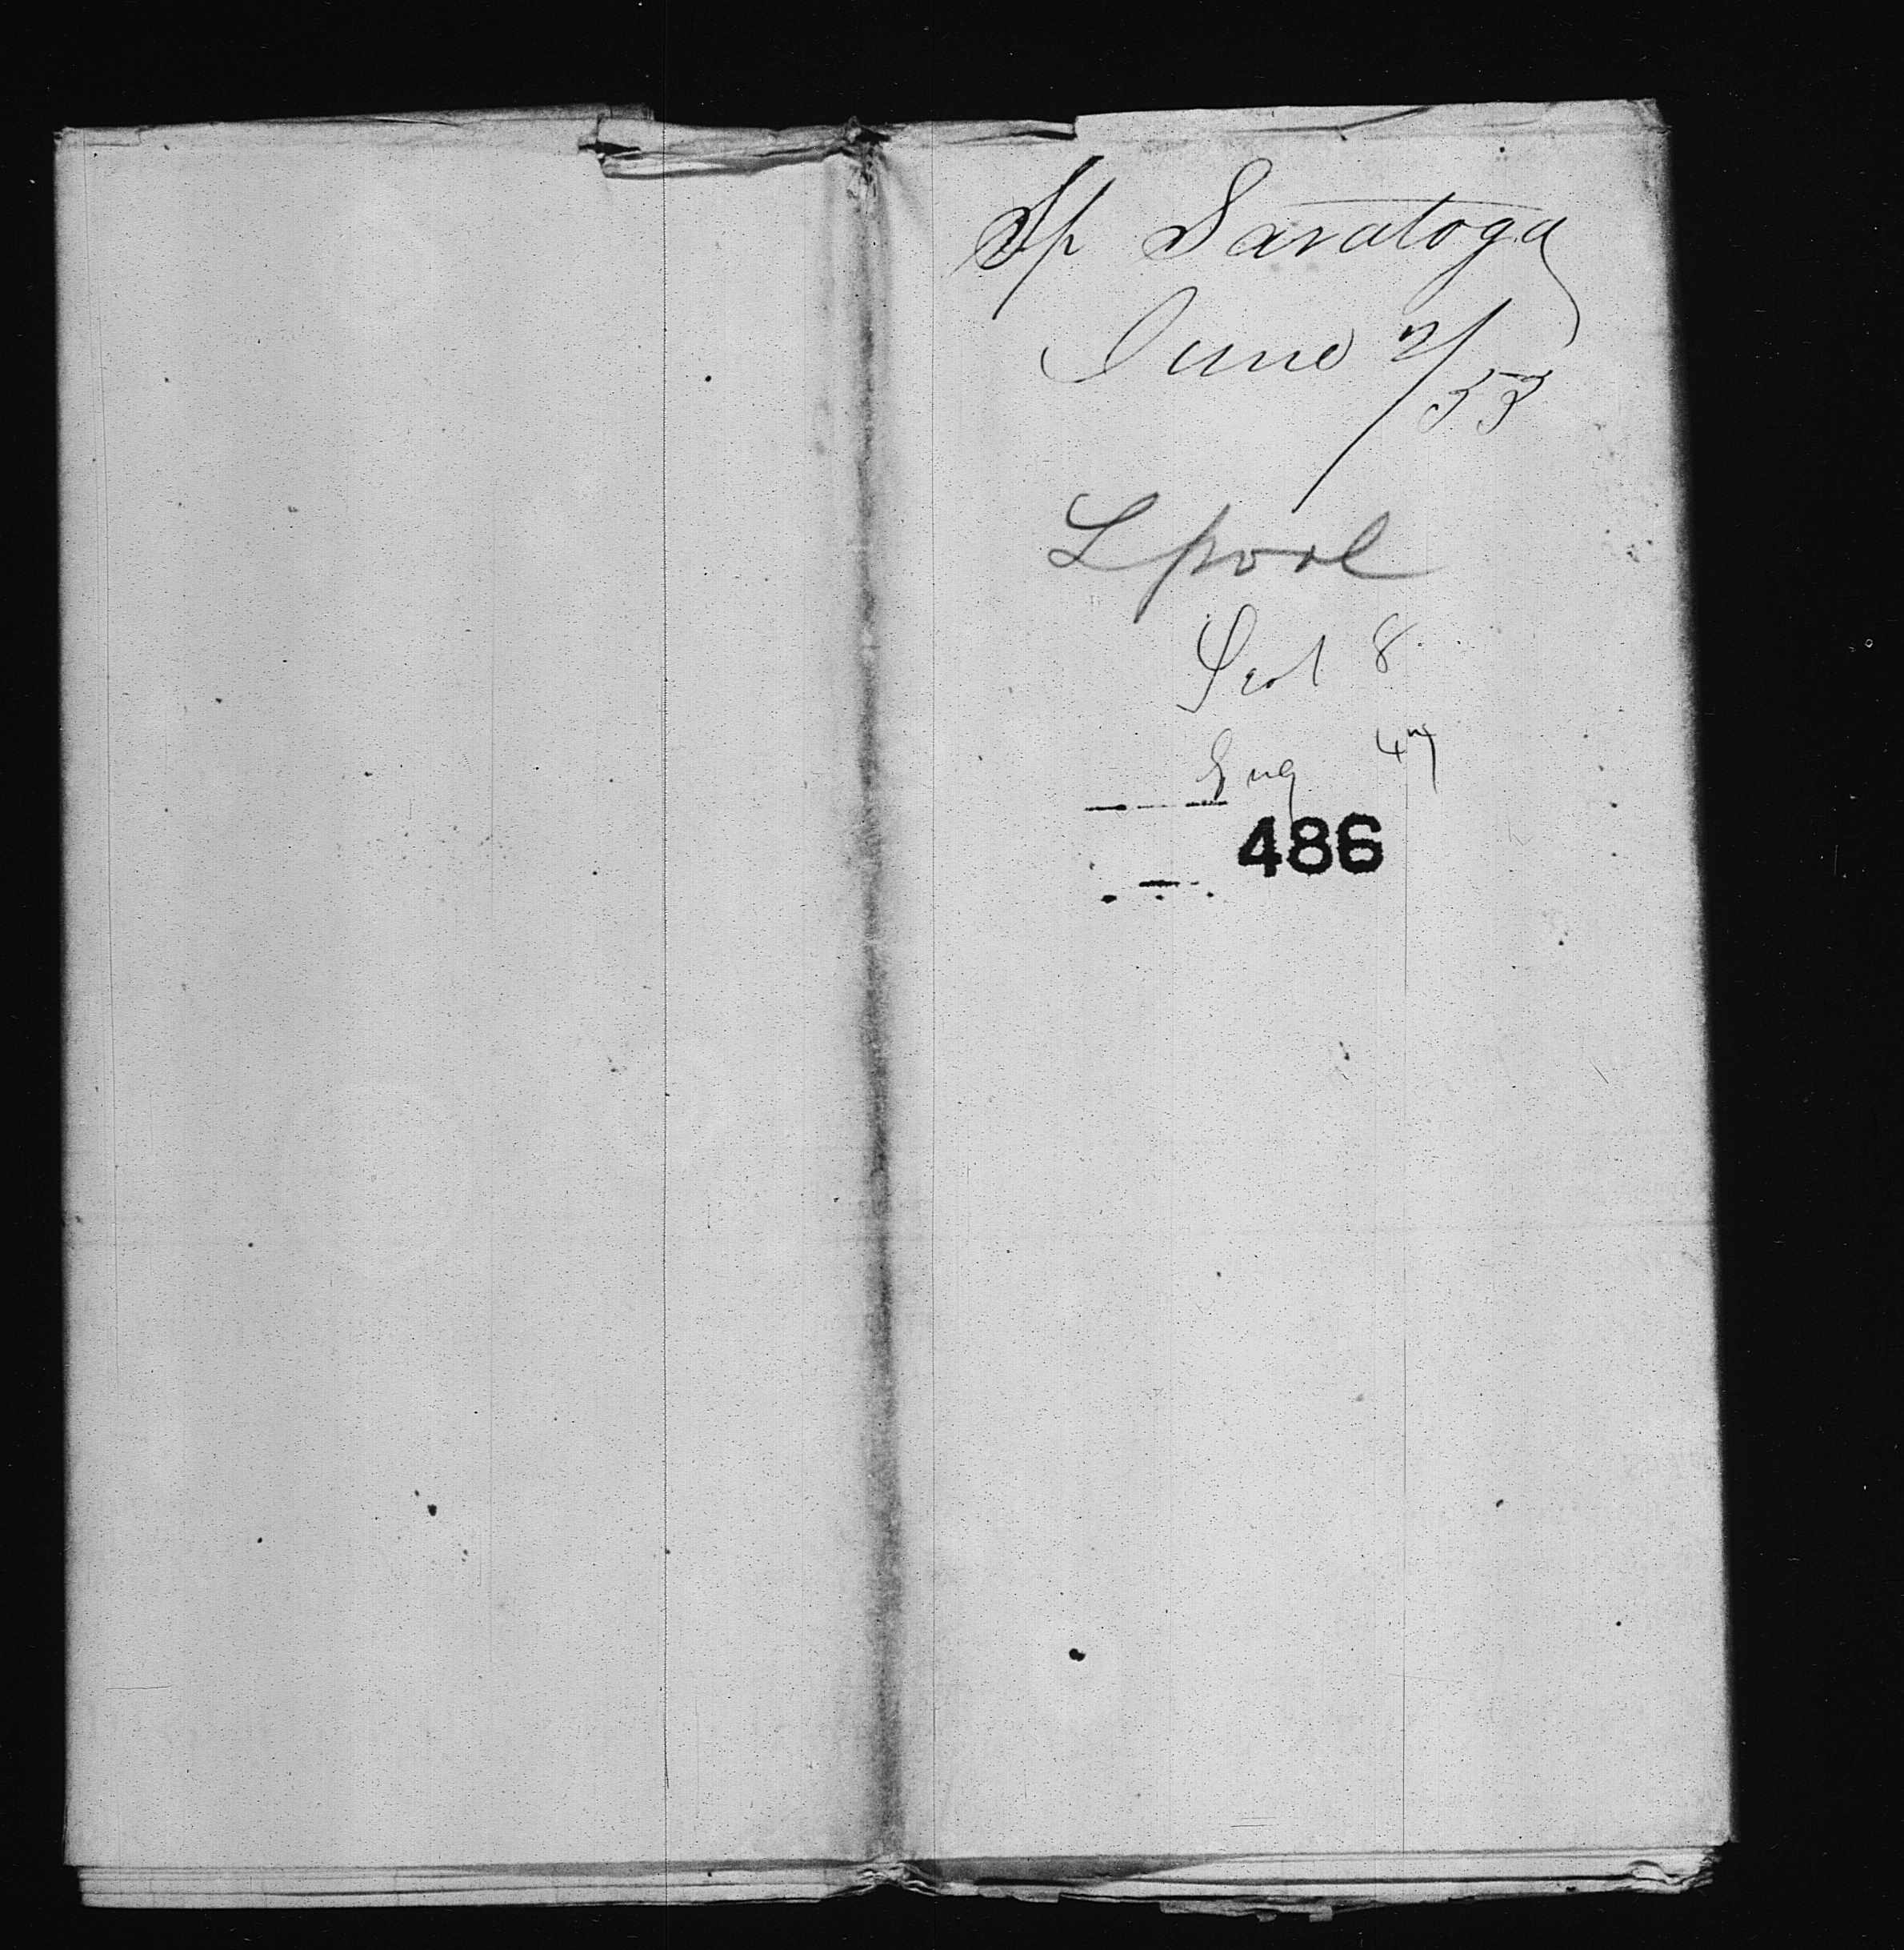 Sp Saratoga
June 2/53
Lpool
Scot 8
Eng 47
486